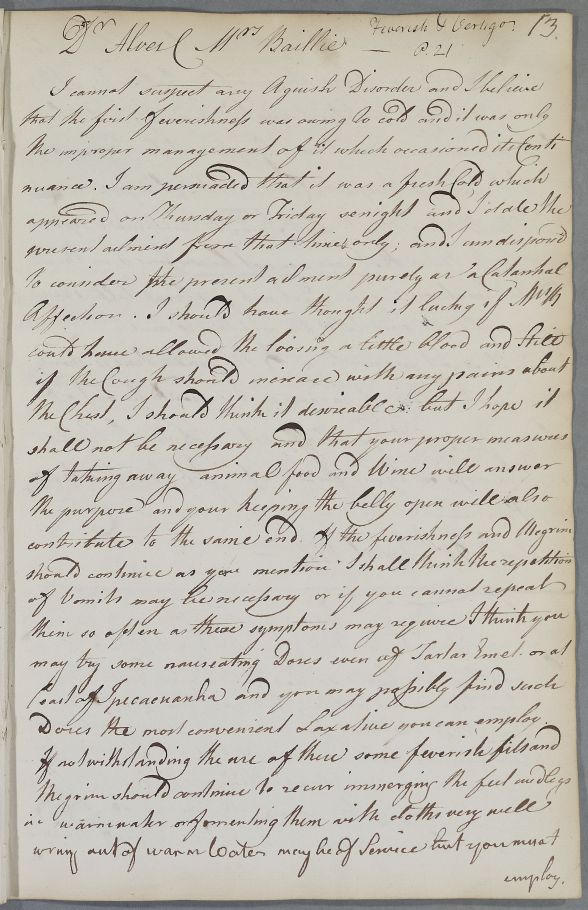 Dr. Alves C Mrs Baillie Feverish & Vertigo. 13.
— P. 21
I cannot suspect any Aguish Disorder and I believe
that the first feverishness was owing to cold and it was only
the improper management of it which occasioned its Conti
nuance. I am persuaded that it was a fresh Cold which
appeared on Thursday or Friday senight and I date the
present ailment from that time only; and I am disposed
to consider the present ailment purely as a Catarrhal
Affection. I should have thought it lucky if
could have allowed the loosing a little blood and still
if the Cough should increase with any pains about
the Chest, I should think it desireable but I hope it
shall not be necessary and that your proper measures
of taking away animal food and Wine will answer
the purpose and your keeping the belly open will also
contribute to the same end. If the feverishness and Megrim
should continue as you mention I shall think the repetition
of Vomits may be necessary or if you cannot repeat
them so often as these symptoms may require I think you
may try some nauseating Doses even of Tartar Emet. or at
least of Ipecacuanha and you may possibly find such
Doses the most convenient Laxative you can employ.
If notwithstanding the use of these some feverish fits and
Megrim should continue to recur immerging the feet and legs
in warm water or fomenting them with cloths very well
wrung out of warm Water may be of Service but you must
employ.